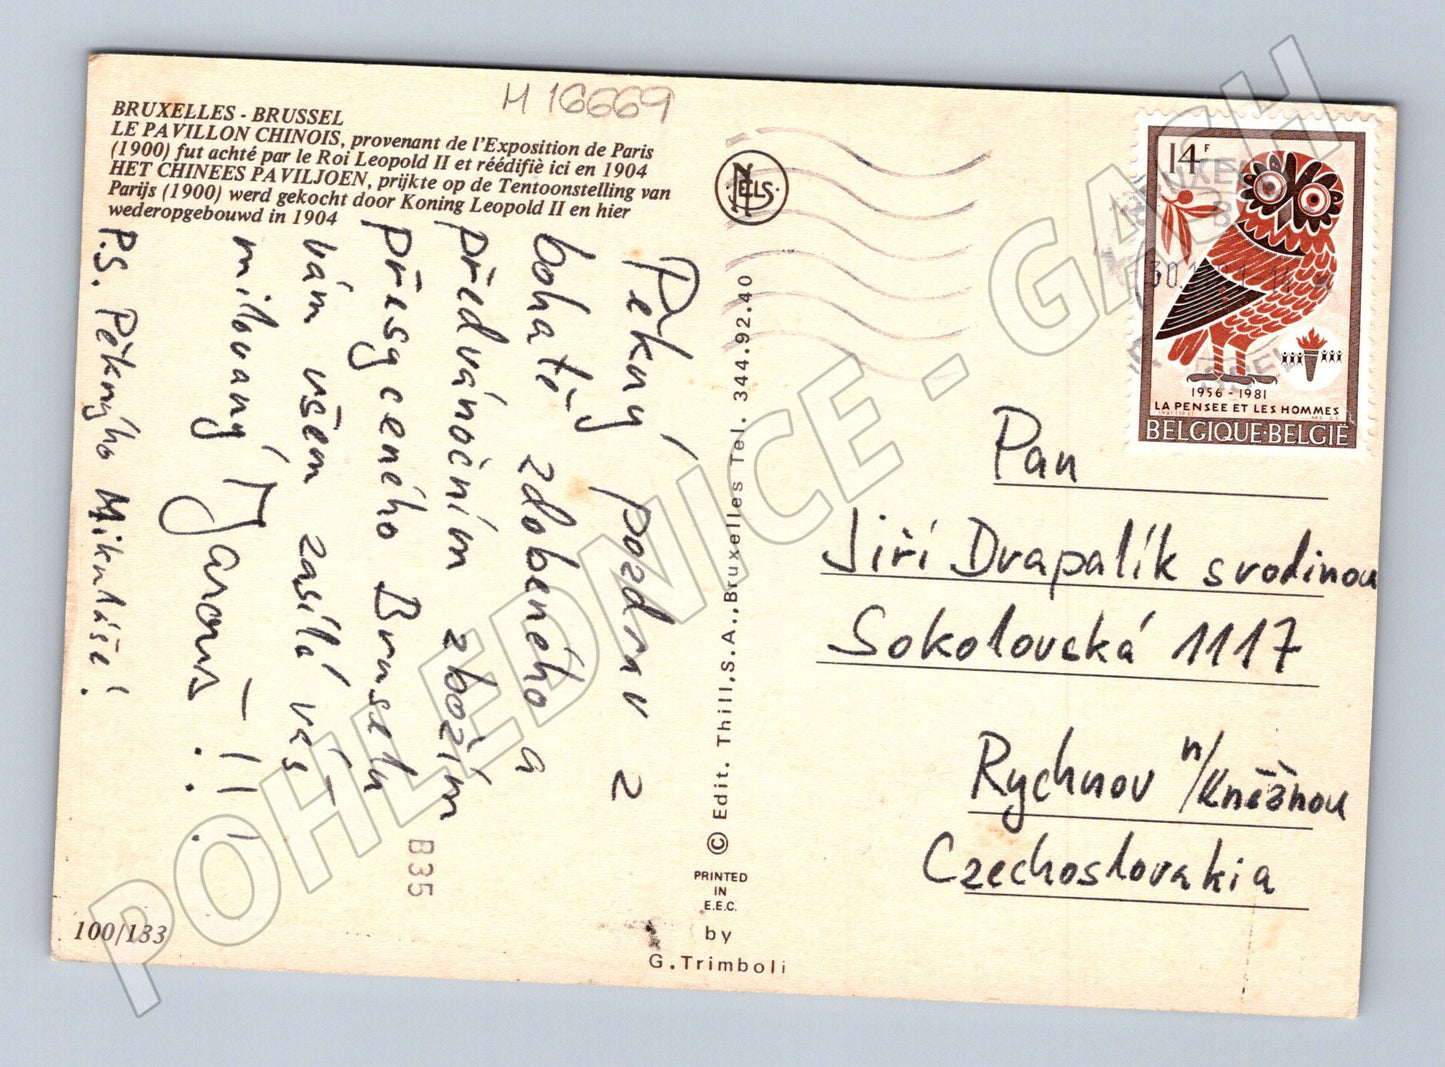 M 16669
BRUXELLES - BRUSSEL
LE PAVILLON CHINOIS, provenant de l'Exposition de Paris
(1900) fut achté par le Roi Leopold II et réédifiè ici en 1904
HET CHINEES PAVILJOEN, prijkte op de Tentoonstelling van
Parijs (1900) werd gekocht door Koning Leopold II en hier
wederopgebouwd in 1904
Pěkný pozdrav z
bohatě zdobeného a
předvánočním zbožím
přesyceného Bruselu
vám všem zasílá váš
milovaný
P.S. Pěknýho Mikuláše!
B35
100/133
NELS
© Edit. Thill, S.A., Bruxelles Tel. 344.92.40
PRINTED
IN
E.E.C.
by
G. Trimboli
14F
1956 - 1981
LA PENSEE ET LES HOMMES
BELGIQUE·BELGIE
Pan
Jiří Drapalík s rodinou
Sokolovská 1117
Rychnov n/Kněžnou
Czechoslovakia
POHLEDNICE - GASH